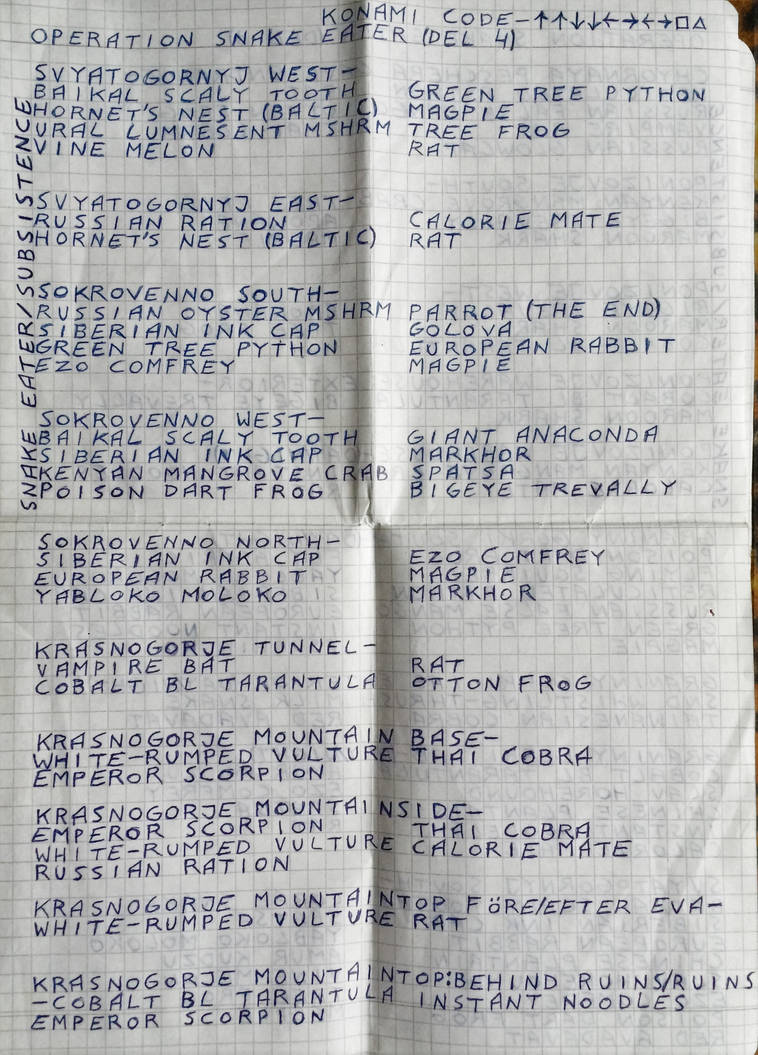 KONAMI CODE-↑↑↓↓←→←→□△
OPERATION SNAKE EATER (DEL 4)
SNAKE EATER/SUBSISTENCE
SVYATOGORNYJ WEST-
BAIKAL SCALY TOOTH GREEN TREE PYTHON
HORNET'S NEST (BALTIC) MAGPIE
URAL LUMNESENT MSHRM TREE FROG
VINE MELON RAT
SVYATOGORNYJ EAST-
RUSSIAN RATION CALORIE MATE
HORNET'S NEST (BALTIC) RAT
SOKROVENNO SOUTH-
RUSSIAN OYSTER MSHRM PARROT (THE END)
SIBERIAN INK CAP GOLOVA
GREEN TREE PYTHON EUROPEAN RABBIT
EZO COMFREY MAGPIE
SOKROVENNO WEST-
BAIKAL SCALY TOOTH GIANT ANACONDA
SIBERIAN INK CAP MARKHOR
KENYAN MANGROVE CRAB SPATSA
POISON DART FROG BIGEYE TREVALLY
SOKROVENNO NORTH-
SIBERIAN INK CAP EZO COMFREY
EUROPEAN RABBIT MAGPIE
YABLOKO MOLOKO MARKHOR
KRASNOGORJE TUNNEL-
VAMPIRE BAT RAT
COBALT BL TARANTULA OTTON FROG
KRASNOGORJE MOUNTAIN BASE-
WHITE-RUMPED VULTURE THAI COBRA
EMPEROR SCORPION
KRASNOGORJE MOUNTAINSIDE-
EMPEROR SCORPION THAI COBRA
WHITE-RUMPED VULTURE CALORIE MATE
RUSSIAN RATION
KRASNOGORJE MOUNTAINTOP FÖRE/EFTER EVA-
WHITE-RUMPED VULTURE RAT
KRASNOGORJE MOUNTAINTOP:BEHIND RUINS/RUINS
-COBALT BL TARANTULA INSTANT NOODLES
EMPEROR SCORPION